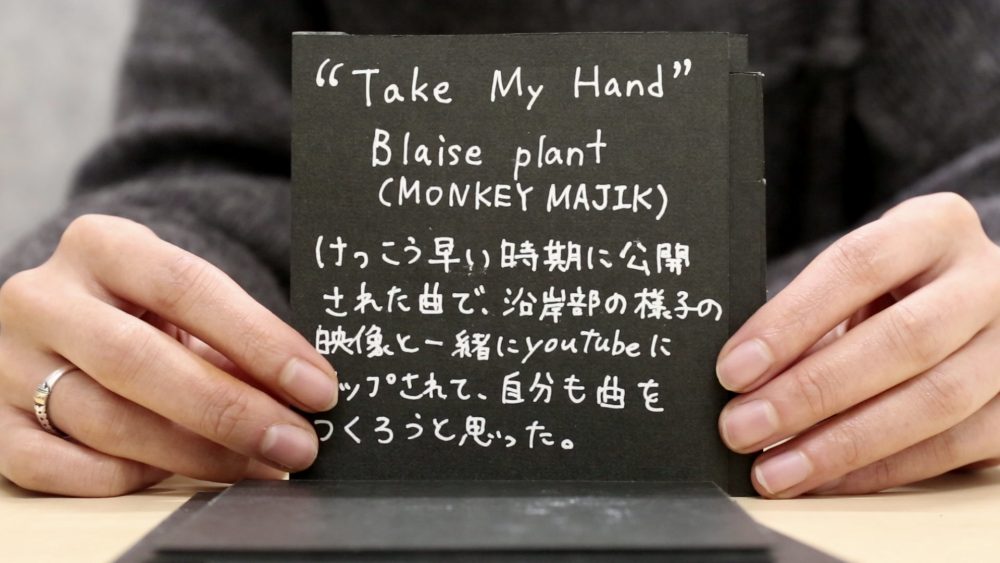 “Take My Hand”
Blaise plant
(MONKEY MAJIK)
けっこう早い時期に公開
された曲で、沿岸部の様子の
映像と一緒にyoutubeに
アップされて、自分も曲を
つくろうと思った。